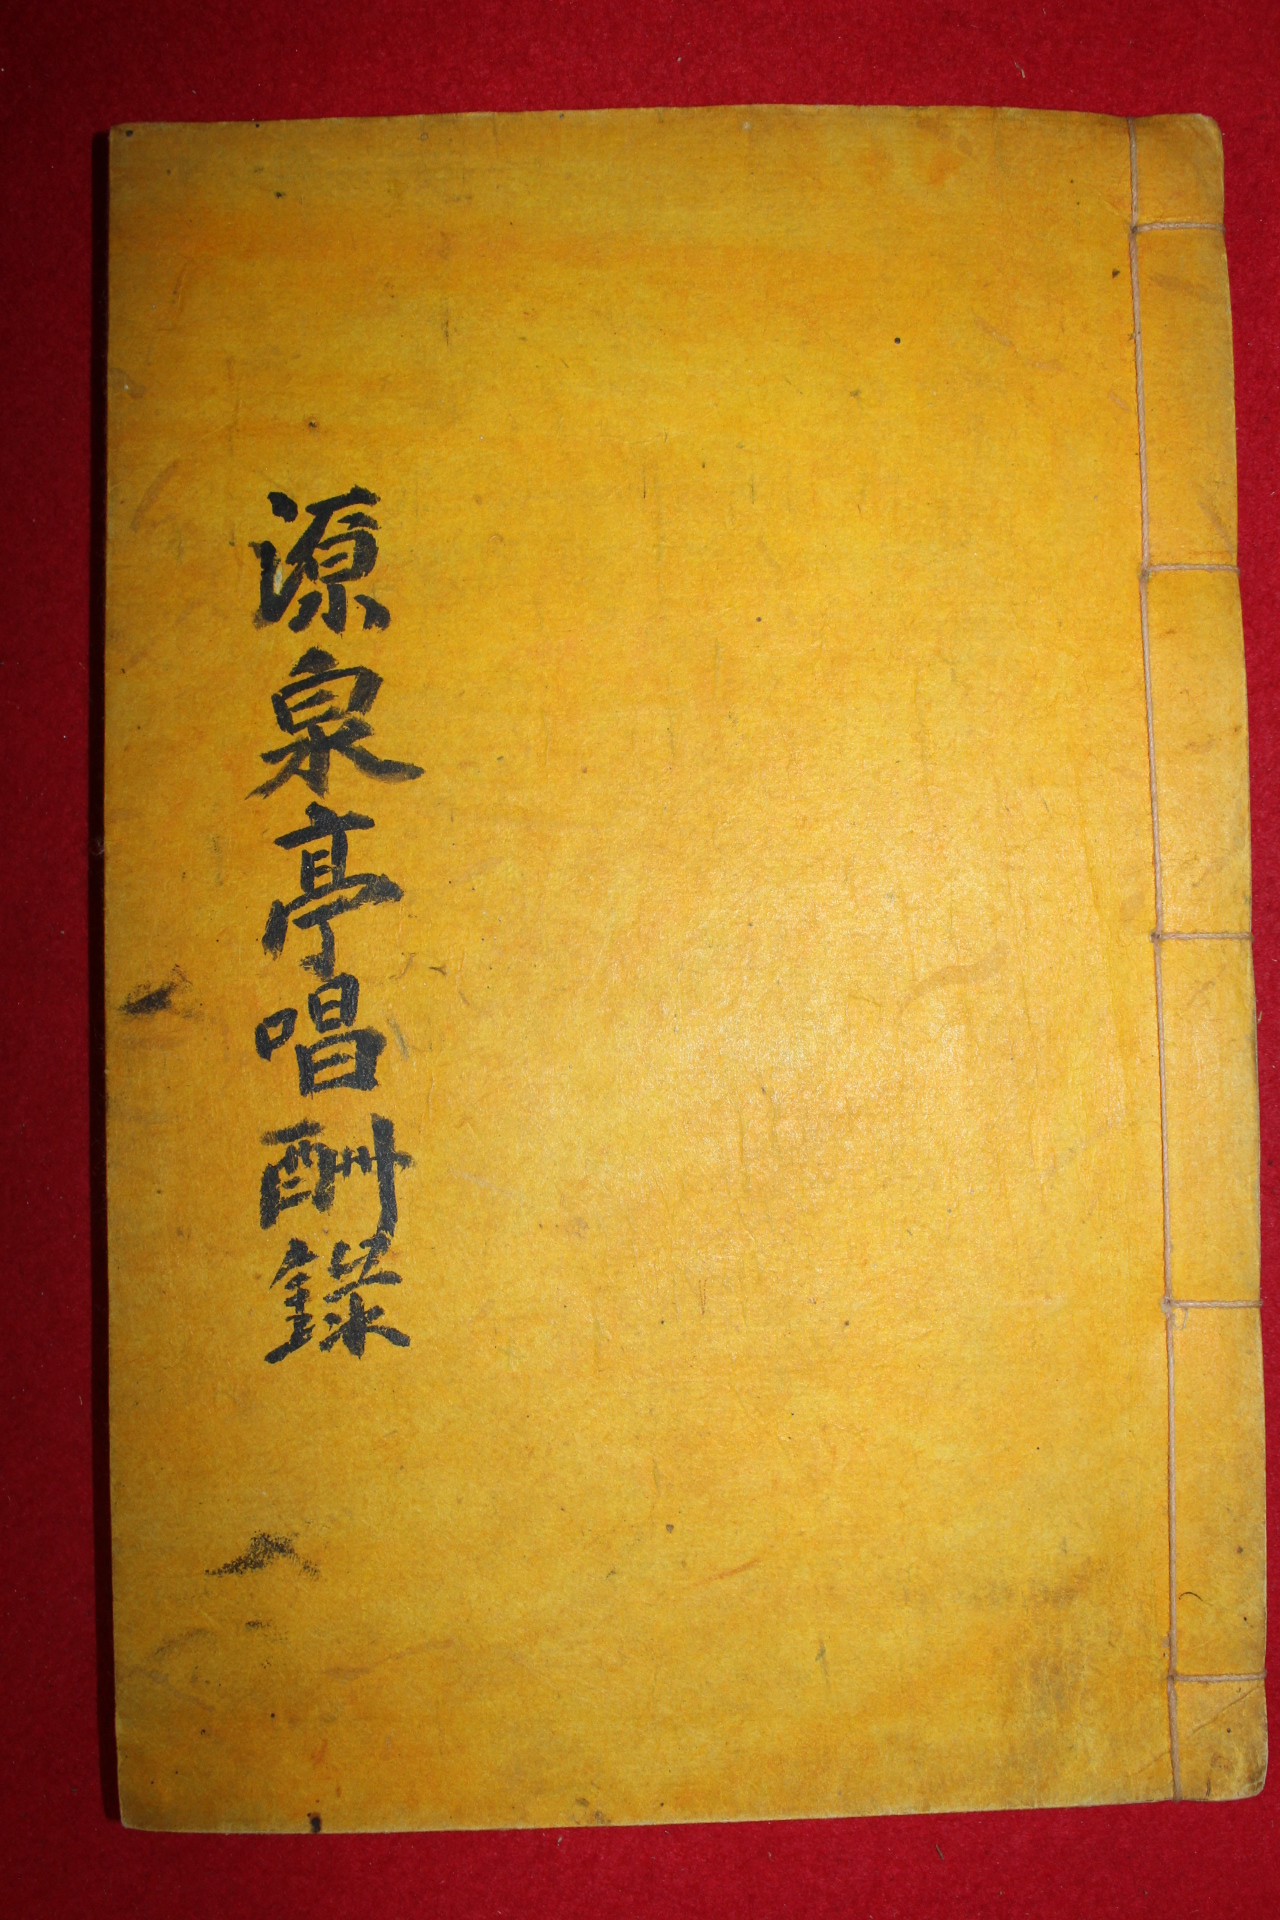 源泉亭唱酬錄